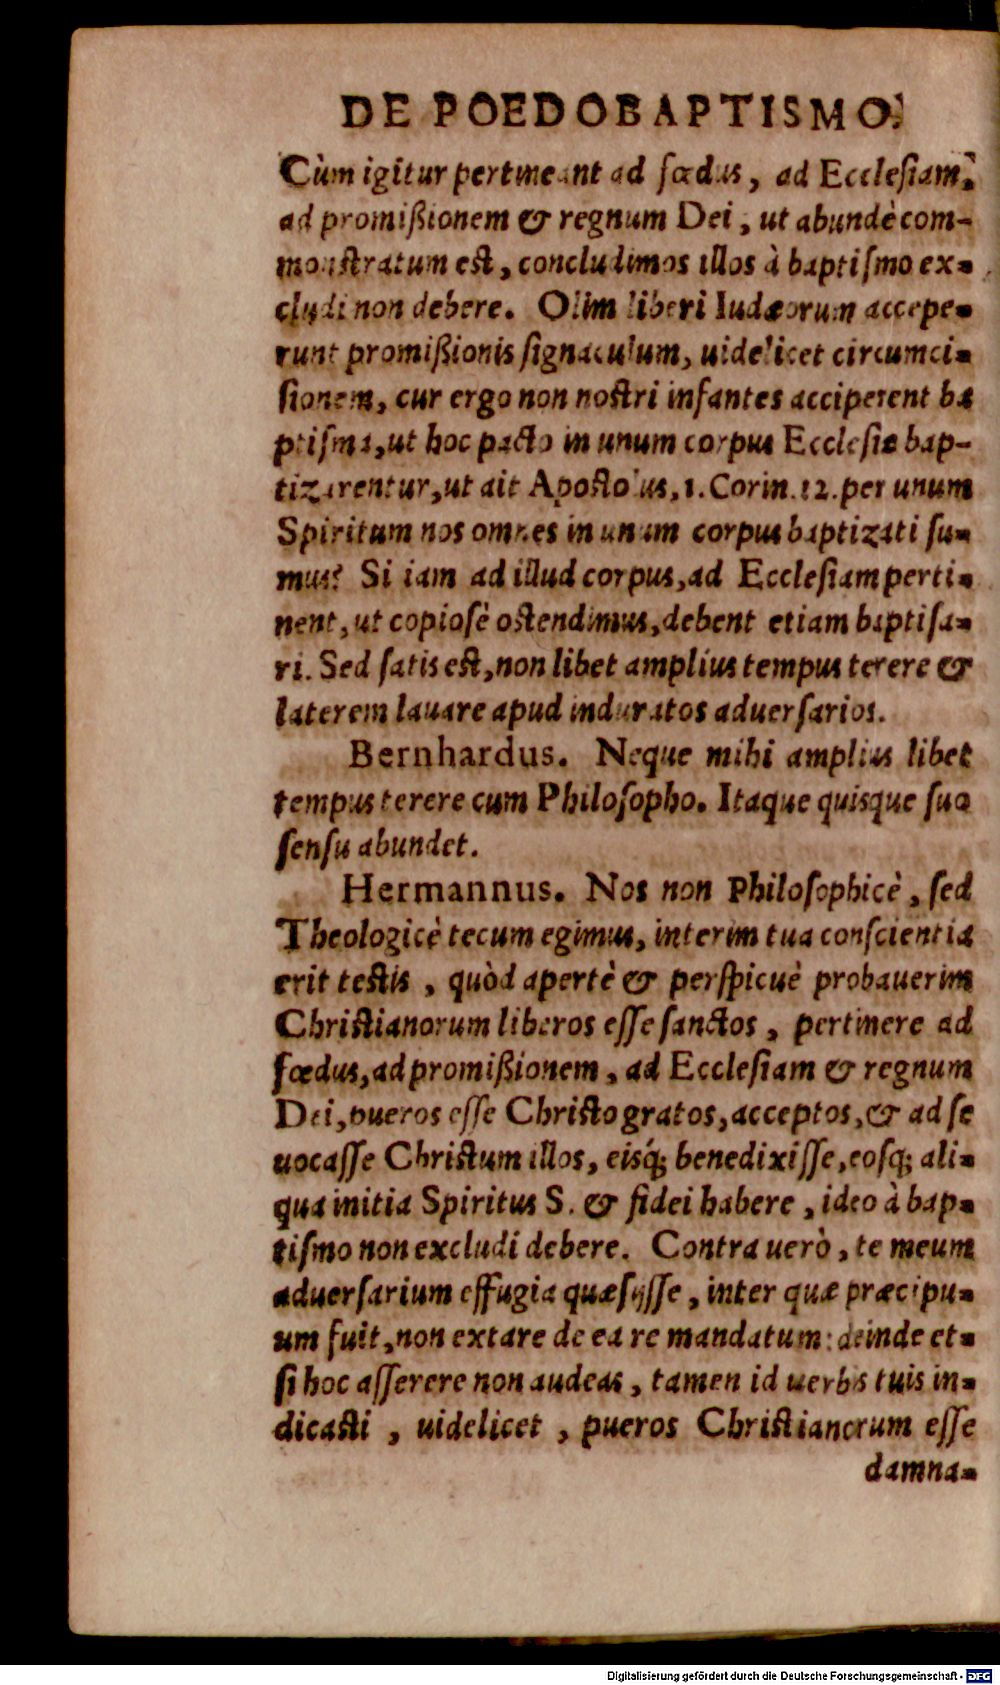 DE POEDOBAPTISMO.
Cùm igitur pertineant ad fœdus, ad Ecclesiam,
ad promißionem & regnum Dei, ut abundè com-
monstratum est, concludimos illos à baptismo ex-
cludi non debere. Olim liberi Iudæorum accepe-
runt promißionis signaculum, uidelicet circumci-
sionem, cur ergo non nostri infantes acciperent ba
ptisma, ut hoc pacto in unum corpus Ecclesiæ bap-
tizarentur, ut ait Apostolus, 1. Corin. 12. per unum
Spiritum nos omnes in unum corpus baptizati su-
mus? Si iam ad illud corpus, ad Ecclesiam perti-
nent, ut copiosè ostendimus, debent etiam baptisa-
ri. Sed satis est, non libet amplius tempus terere &
laterem lauare apud induratos aduersarios.
Bernhardus. Neque mihi amplius libet
tempus terere cum Philosopho. Itaque quisque suo
sensu abundet.
Hermannus. Nos non Philosophicè, sed
Theologicè tecum egimus, interim tua conscientia
erit testis, quòd apertè & perspicuè probauerim
Christianorum liberos esse sanctos, pertinere ad
fœdus, ad promißionem, ad Ecclesiam & regnum
Dei, pueros esse Christo gratos, acceptos, & ad se
uocasse Christum illos, eisq́; benedixisse, eosq; ali-
qua initia Spiritus S. & fidei habere, ideo à bap-
tismo non excludi debere. Contra uerò, te meum
aduersarium effugia quæsijsse, inter quæ præcipu-
um fuit, non extare de ea re mandatum: deinde et-
si hoc asserere non audeas, tamen id uerbis tuis in-
dicasti, uidelicet, pueros Christianorum esse
damna-
Digitalisierung gefördert durch die Deutsche Forschungsgemeinschaft - DFG